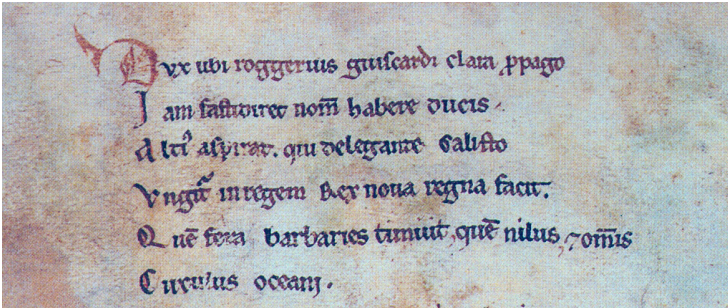 Dux ubi roggerius guiscardi clara ꝓpago
Iam fastidiret nom̄ habere ducis.
Altiꝰ aspirat. qui delegante Calisto
Ungit᷑ in regem Rex noua regna facit.
Quē fera barbaries timuit, quē nilus, ⁊ om̄is
C oceani.